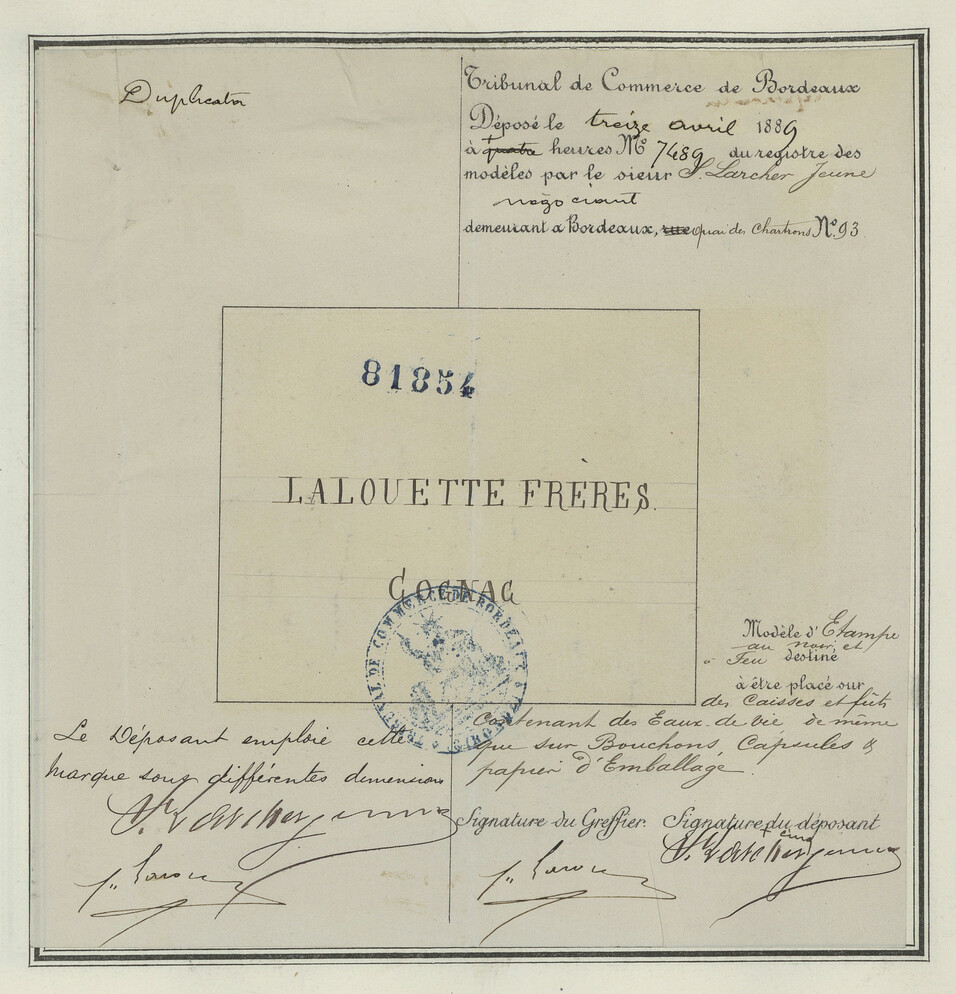 Duplicata
Tribunal de Commerce de Bordeaux
Déposé le treize avril 1889
à quatre heures No 7489 du registre des
modèles par le sieur S. Larcher Jeune
négociant
demeurant à Bordeaux, rue quai des Chartrons No. 93.
81854
LALOUETTE FRÈRES.
COGNAC
TRIBUNAL DE COMMERCE DE BORDEAUX
Modèle d'Etampe
au noir et
à Feu destiné
à être placé sur
des Caisses et fûts
Contenant des Eaux-de-vie de même
que sur Bouchons, Capsules &
papier d'Emballage.
Le Déposant emploie cette
marque sous différentes dimensions
S. Larcher jeune
Signature du Greffier. Signature du déposant
+ cinq
S. Larcher jeune